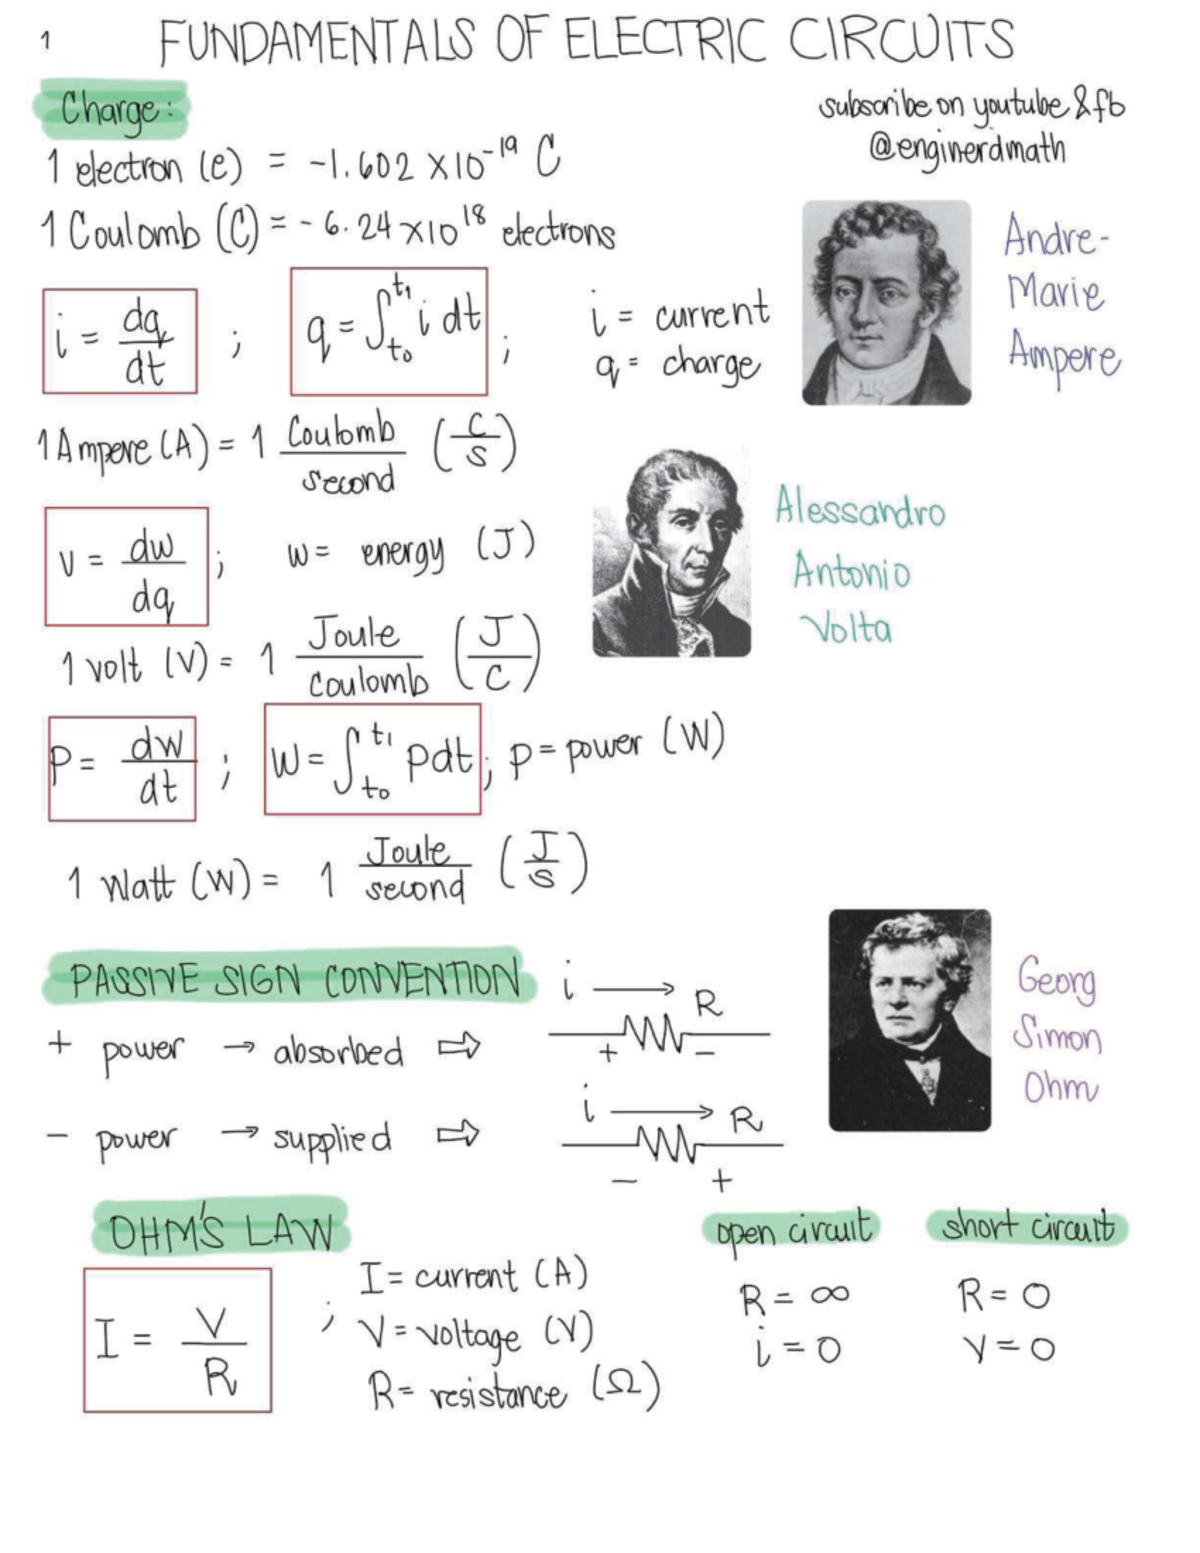 1
FUNDAMENTALS OF ELECTRIC CIRCUITS
Charge:
subscribe on youtube & fb
@enginerdmath
1 electron (e) = -1.602 ×10⁻¹⁹ C
1 Coulomb (C) = - 6.24 ×10¹⁸ electrons
Andre-
Marie
Ampere
i = dq/dt ; q = ∫t₀t₁ i dt ;
i = current
q = charge
1 Ampere (A) = 1 Coulomb/second (C/s)
Alessandro
Antonio
Volta
v = dw/dq ; w = energy (J)
1 volt (V) = 1 Joule/Coulomb (J/C)
P = dw/dt ; W = ∫t₀t₁ pdt ; p = power (W)
1 Watt (W) = 1 Joule/second (J/s)
PASSIVE SIGN CONVENTION
i → R
+ -
Georg
Simon
Ohm
+ power → absorbed ⇨
i → R
- +
- power → supplied ⇨
OHM'S LAW
I = V/R ;
I = current (A)
V = voltage (V)
R = resistance (Ω)
open circuit
R = ∞
i = 0
short circuit
R = 0
V = 0